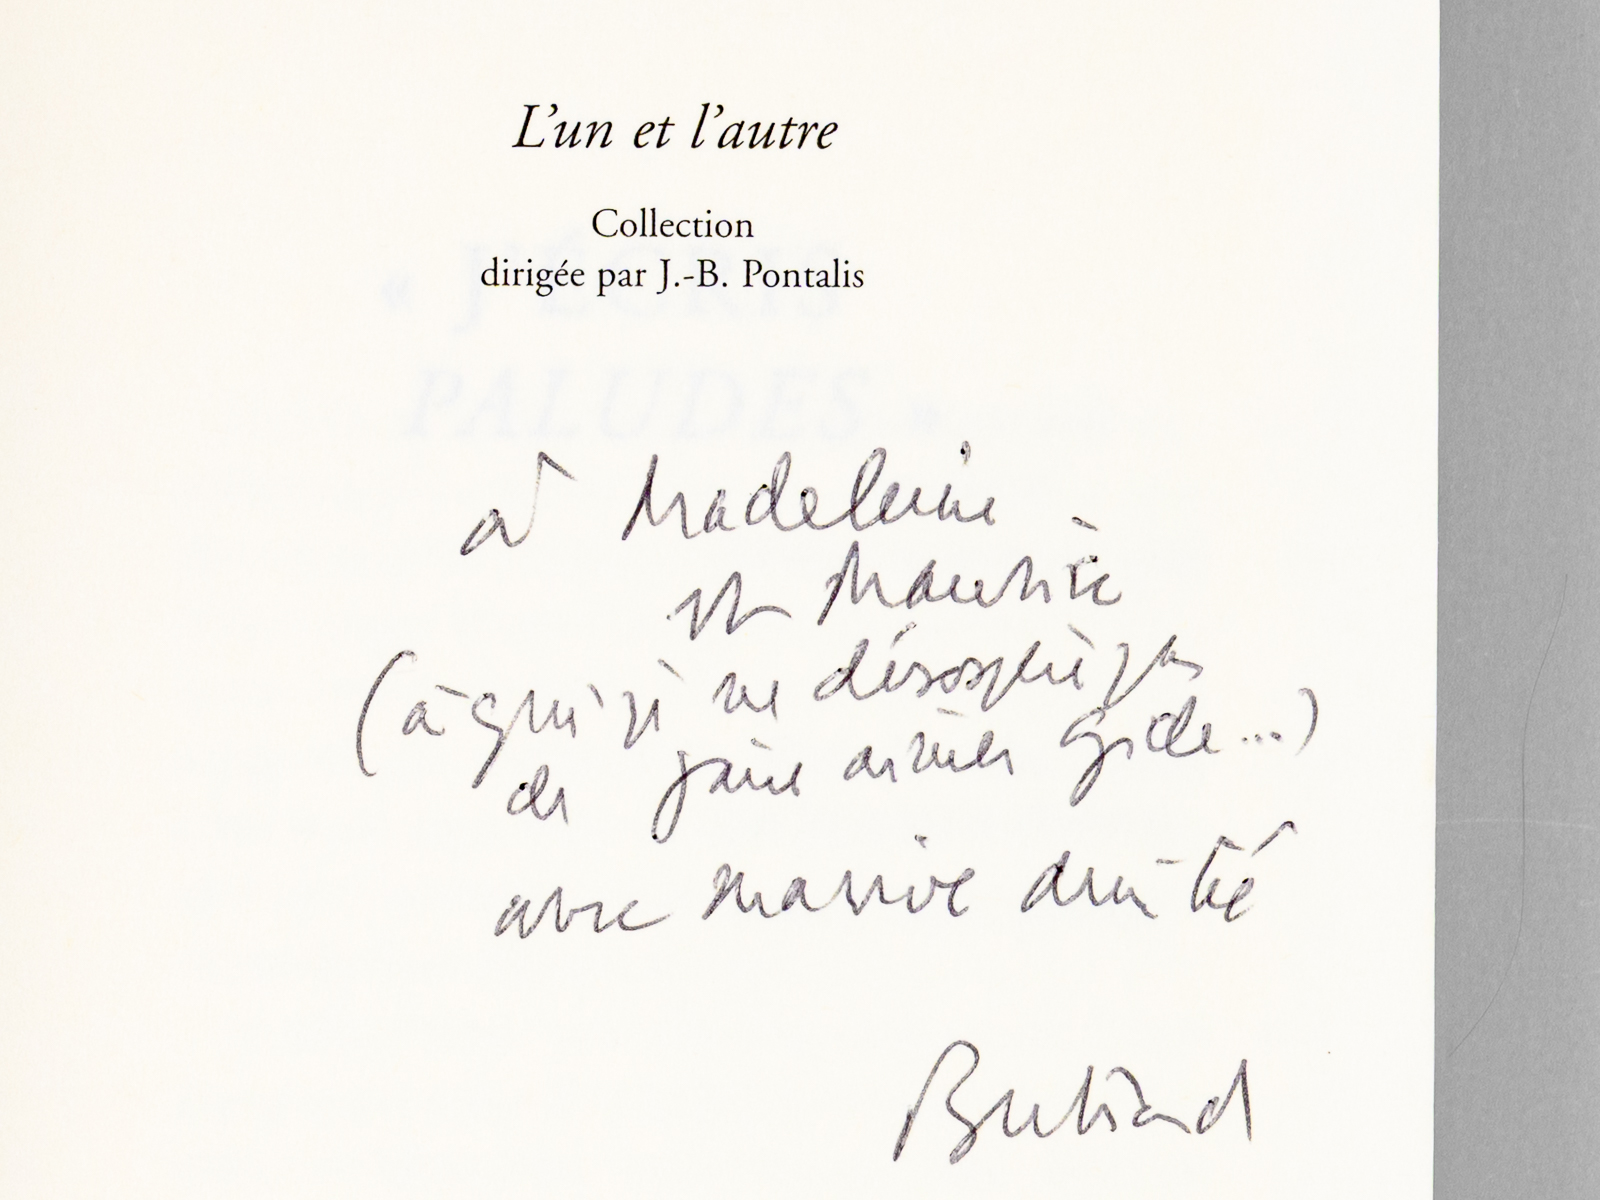 L'un et l'autre
Collection
dirigée par J.-B. Pontalis
« J'ÉCRIS
PALUDES »
à Madeleine
et Maurice
(à qui je ne désespère pas
de faire aimer Gide...)
avec massive amitié
Bertrand